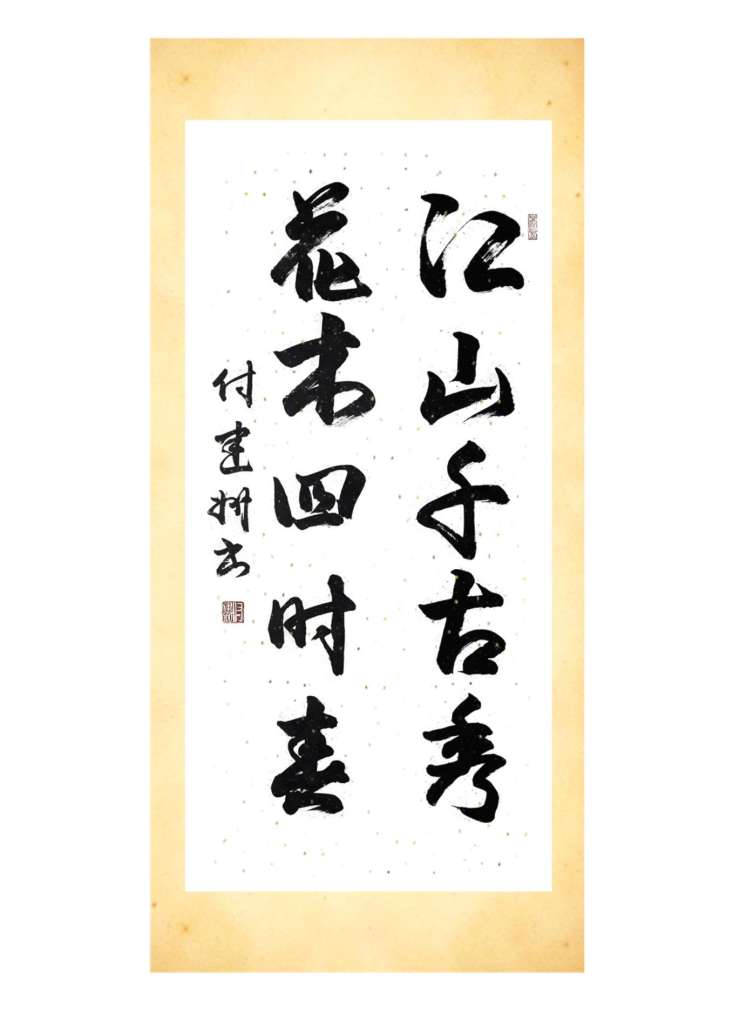 江山千古秀
花木四时春
付建妍书